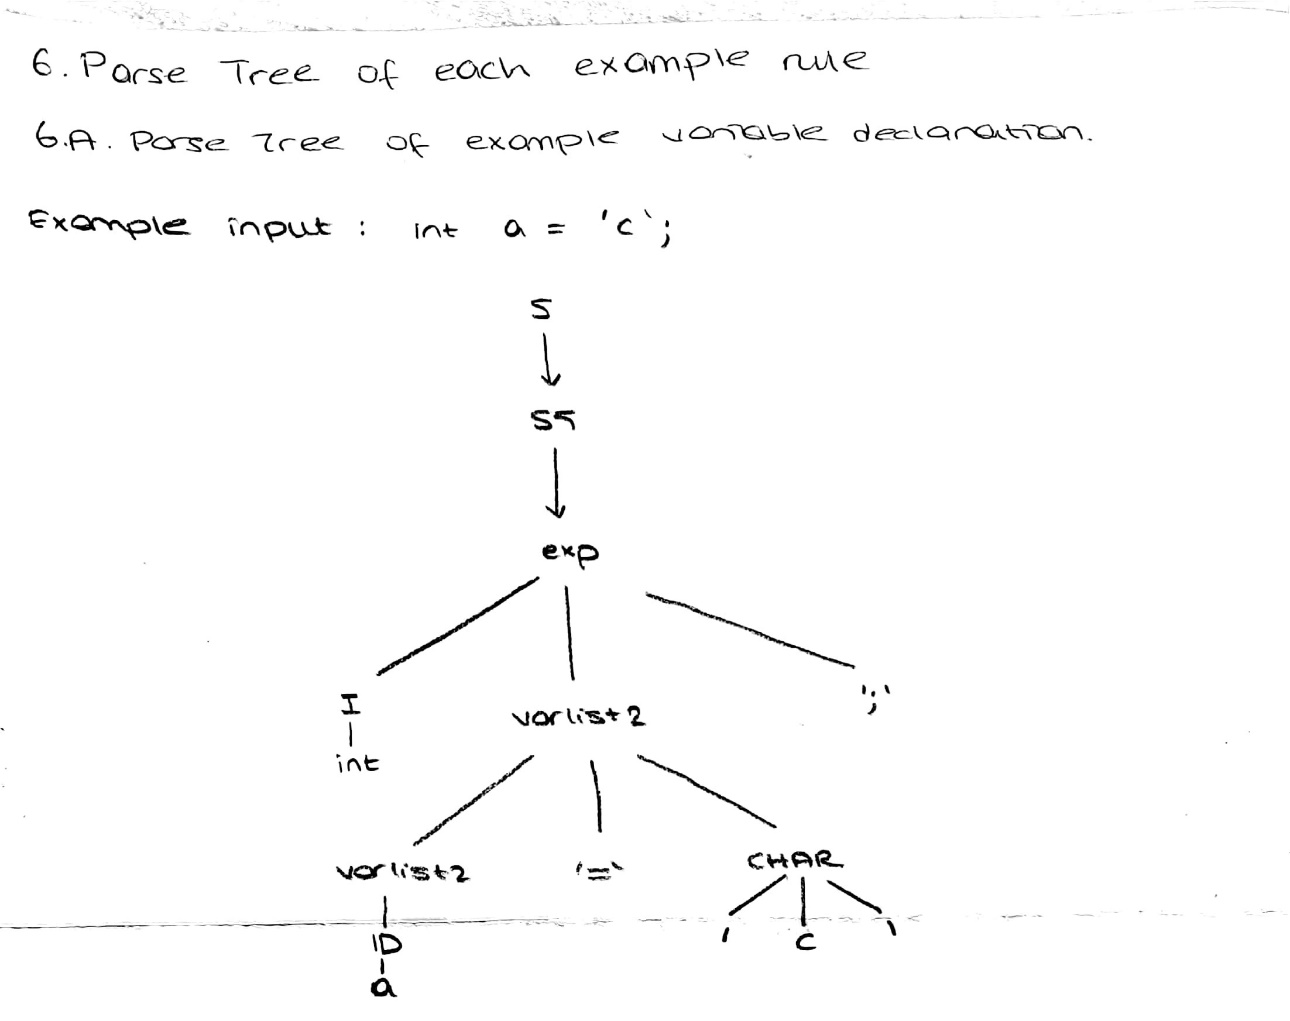 6. Parse Tree of each example rule
6.A. Parse Tree of example variable declaration.
Example input : int a = 'c';
S
SS
exp
I
varlist2
';'
int
varlist2
'='
CHAR
ID
' c '
a